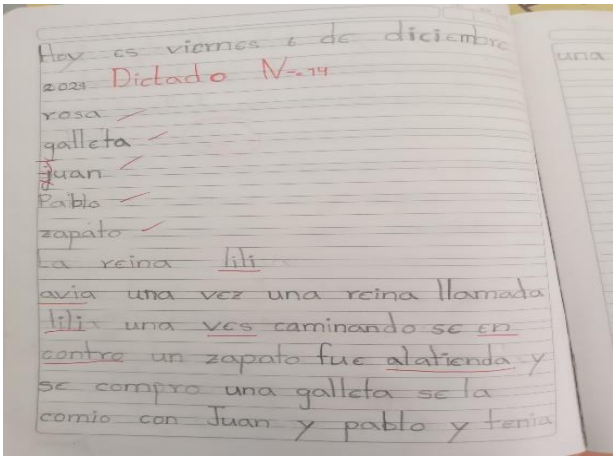 Hoy es viernes 6 de diciembre
2024 Dictado N-.14
rosa
galleta
juan
Pablo
zapato
La reina lili
avia una vez una reina llamada
lili una ves caminando se en
contro un zapato fue alatienda y
se compro una galleta se la
comio con Juan y pablo y tenia
una